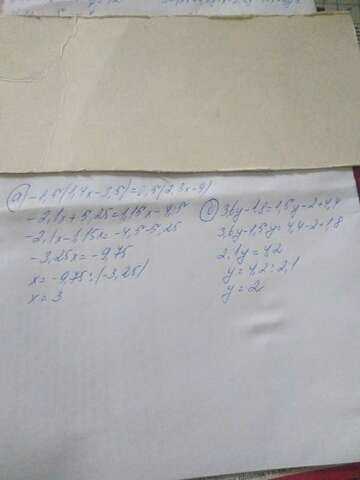 а) -1,5(1,4x-3,5)=0,5(2,3x-9)
-2,1x+5,25=1,15x-4,5
-2,1x-1,15x=-4,5-5,25
-3,25x=-9,75
x=-9,75:(-3,25)
x=3
с) 3,6y-1,8=1,5y-2+4,4
3,6y-1,5y=4,4-2+1,8
2,1y=4,2
y=4,2:2,1
y=2